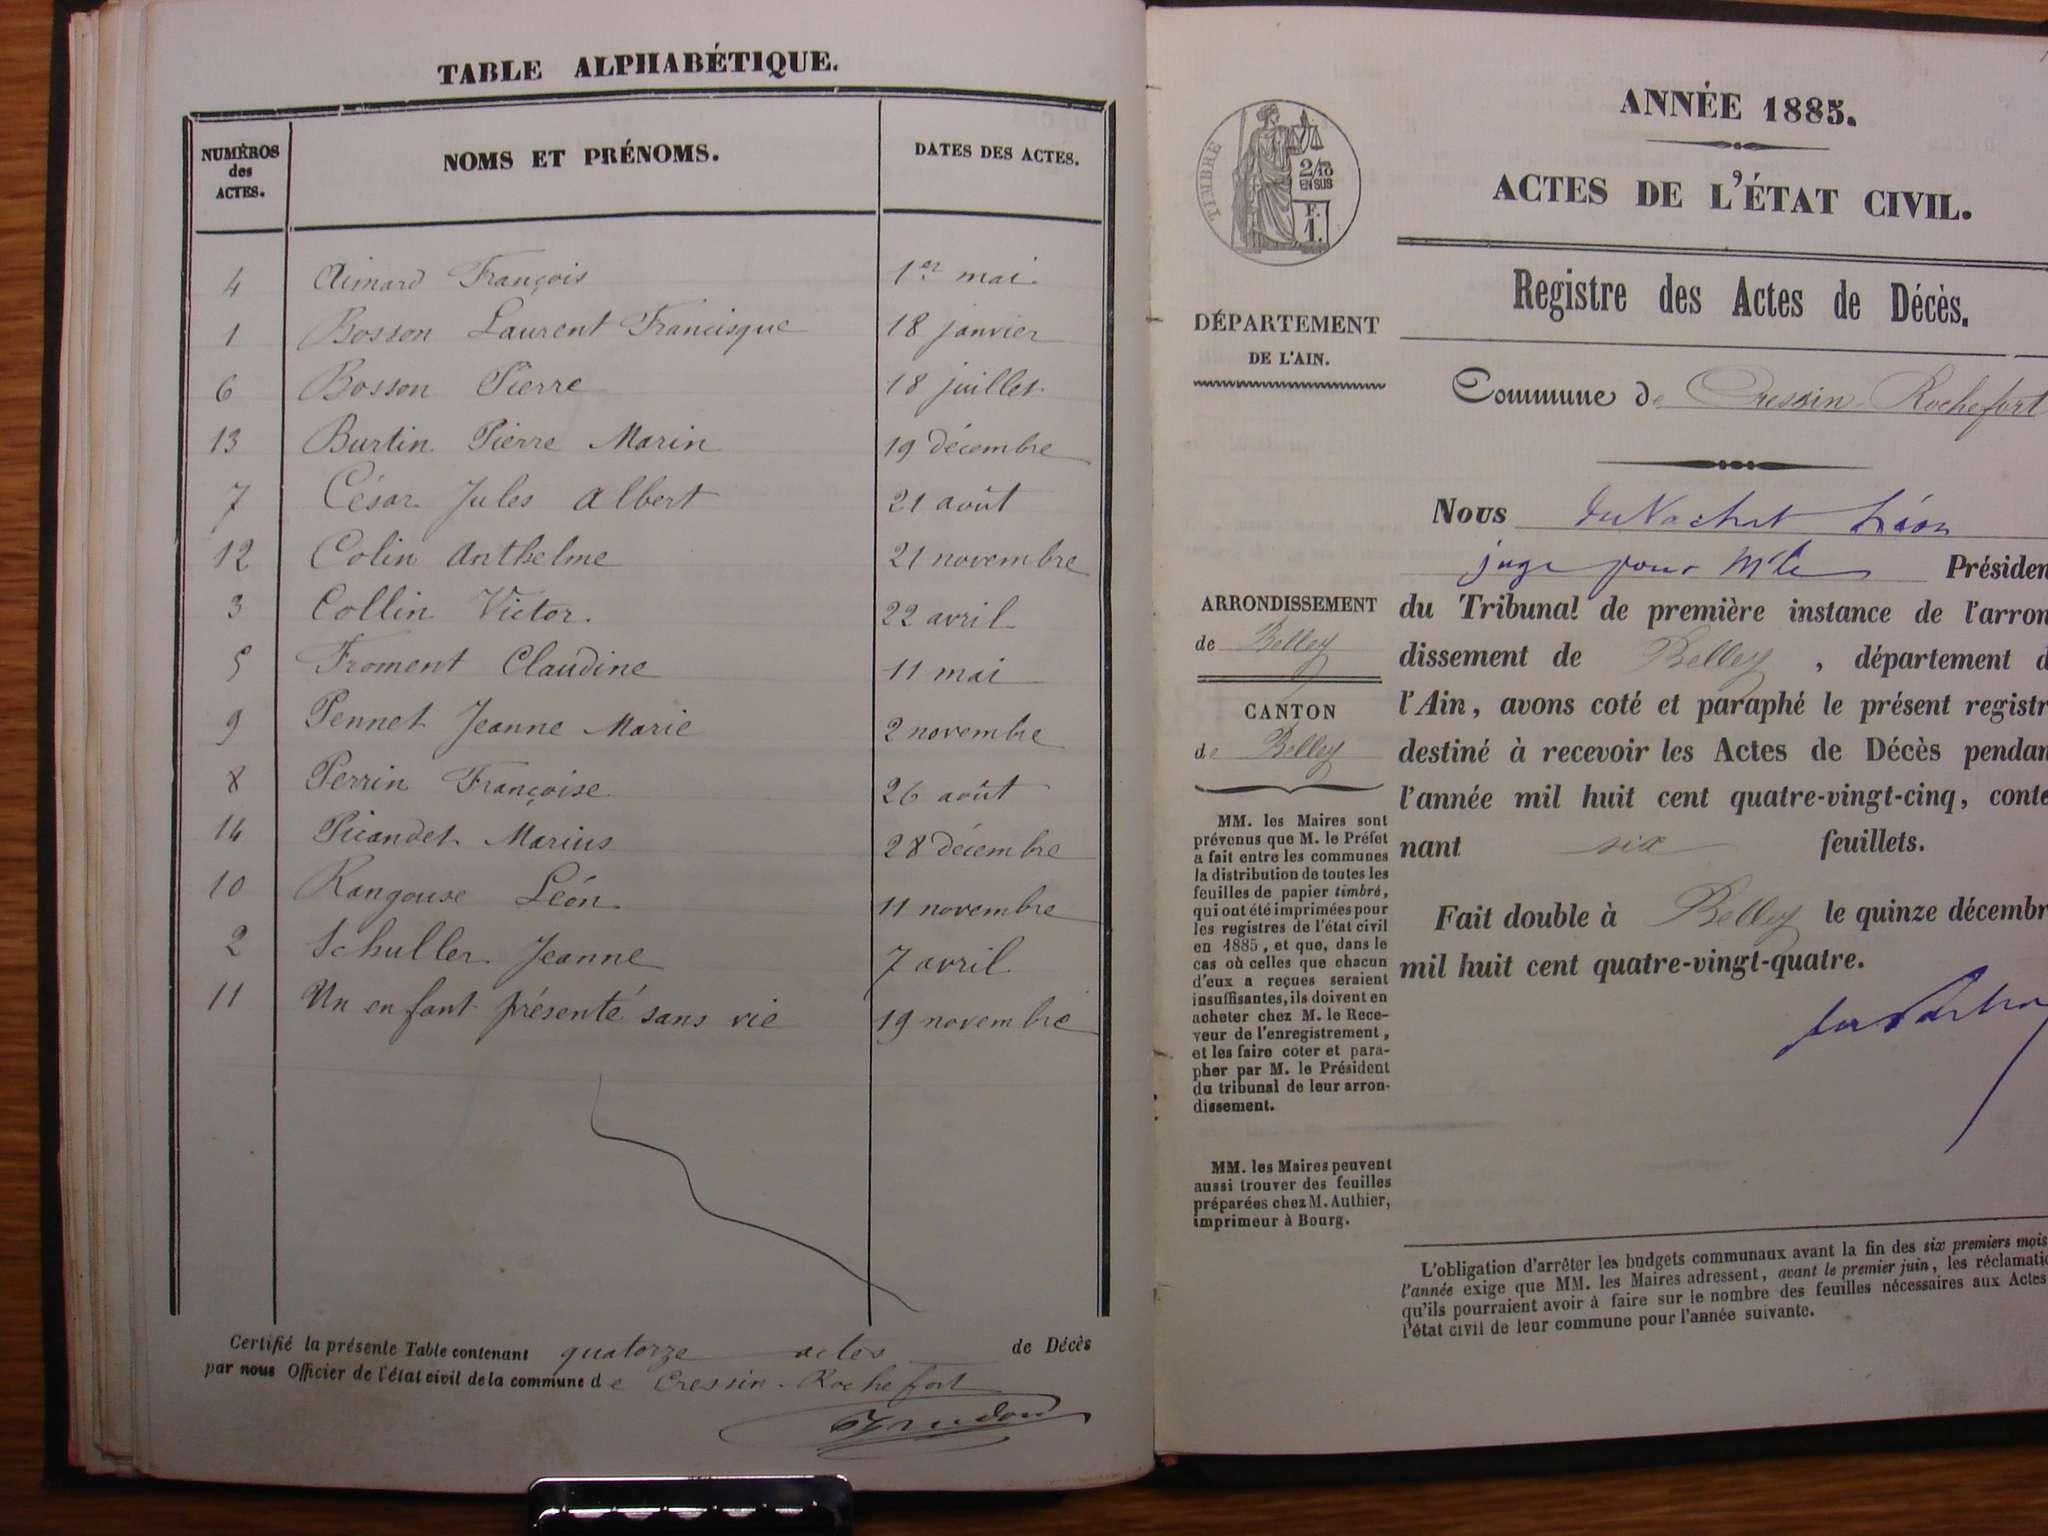 TABLE ALPHABÉTIQUE.
NUMÉROS des ACTES. NOMS ET PRÉNOMS. DATES DES ACTES.
4 Aimard François 1er mai
1 Bosson Laurent Francisque 18 janvier
6 Bosson Pierre 18 juillet
13 Burtin Pierre Marin 19 décembre
7 César Jules Albert 21 août
12 Colin Anthelme 21 novembre
3 Collin Victor. 22 avril
5 Froment Claudine 11 mai
9 Pennet Jeanne Marie 2 novembre
8 Perrin Françoise 26 août
14 Picandet Marius 28 décembre
10 Rangouse Léon 11 novembre
2 Schuller Jeanne 7 avril
11 Un enfant présenté sans vie 19 novembre
Certifié la présente Table contenant quatorze actes de Décès
par nous Officier de l'état civil de la commune de Cressin-Rochefort
TIMBRE
2/10
EN SUS
F.
1.
DÉPARTEMENT
DE L'AIN.
ARRONDISSEMENT
de Belley
CANTON
de Belley
MM. les Maires sont
prévenus que M. le Préfet
a fait entre les communes
la distribution de toutes les
feuilles de papier timbré,
qui ont été imprimées pour
les registres de l'état civil
en 1885, et que, dans le
cas où celles que chacun
d'eux a reçues seraient
insuffisantes, ils doivent en
acheter chez M. le Rece-
veur de l'enregistrement,
et les faire coter et para-
pher par M. le Président
du tribunal de leur arron-
dissement.
MM. les Maires peuvent
aussi trouver des feuilles
préparées chez M. Authier,
imprimeur à Bourg.
ANNÉE 1885.
ACTES DE L'ÉTAT CIVIL.
Registre des Actes de Décès.
Commune de Cressin-Rochefort
Nous Léon
juge pour Mr le Présiden
du Tribunal de première instance de l'arron
dissement de Belley, département d
l'Ain, avons coté et paraphé le présent registr
destiné à recevoir les Actes de Décès pendan
l'année mil huit cent quatre-vingt-cinq, conte
nant six feuillets.
Fait double à Belley le quinze décembr
mil huit cent quatre-vingt-quatre.
L'obligation d'arrêter les budgets communaux avant la fin des six premiers mois
l'année exige que MM. les Maires adressent, avant le premier juin, les réclamatio
qu'ils pourraient avoir à faire sur le nombre des feuilles nécessaires aux Actes
l'état civil de leur commune pour l'année suivante.